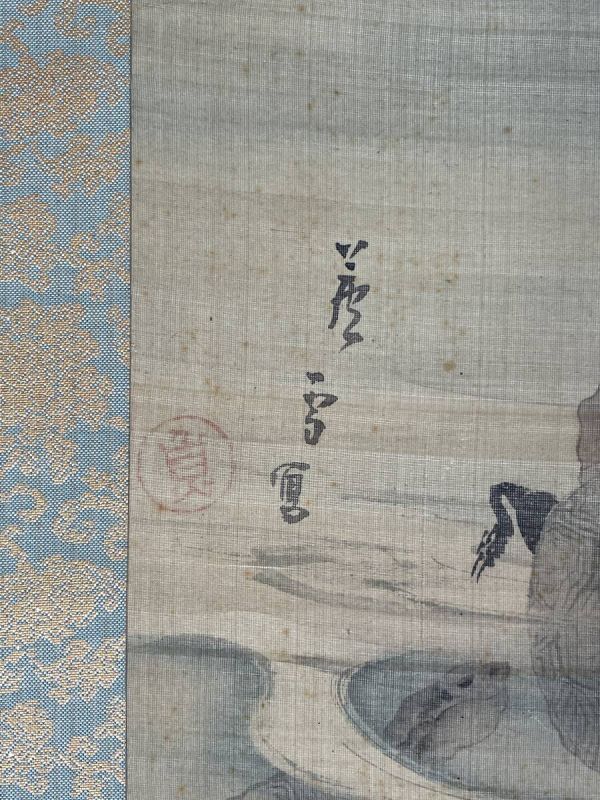 蘆雪寫